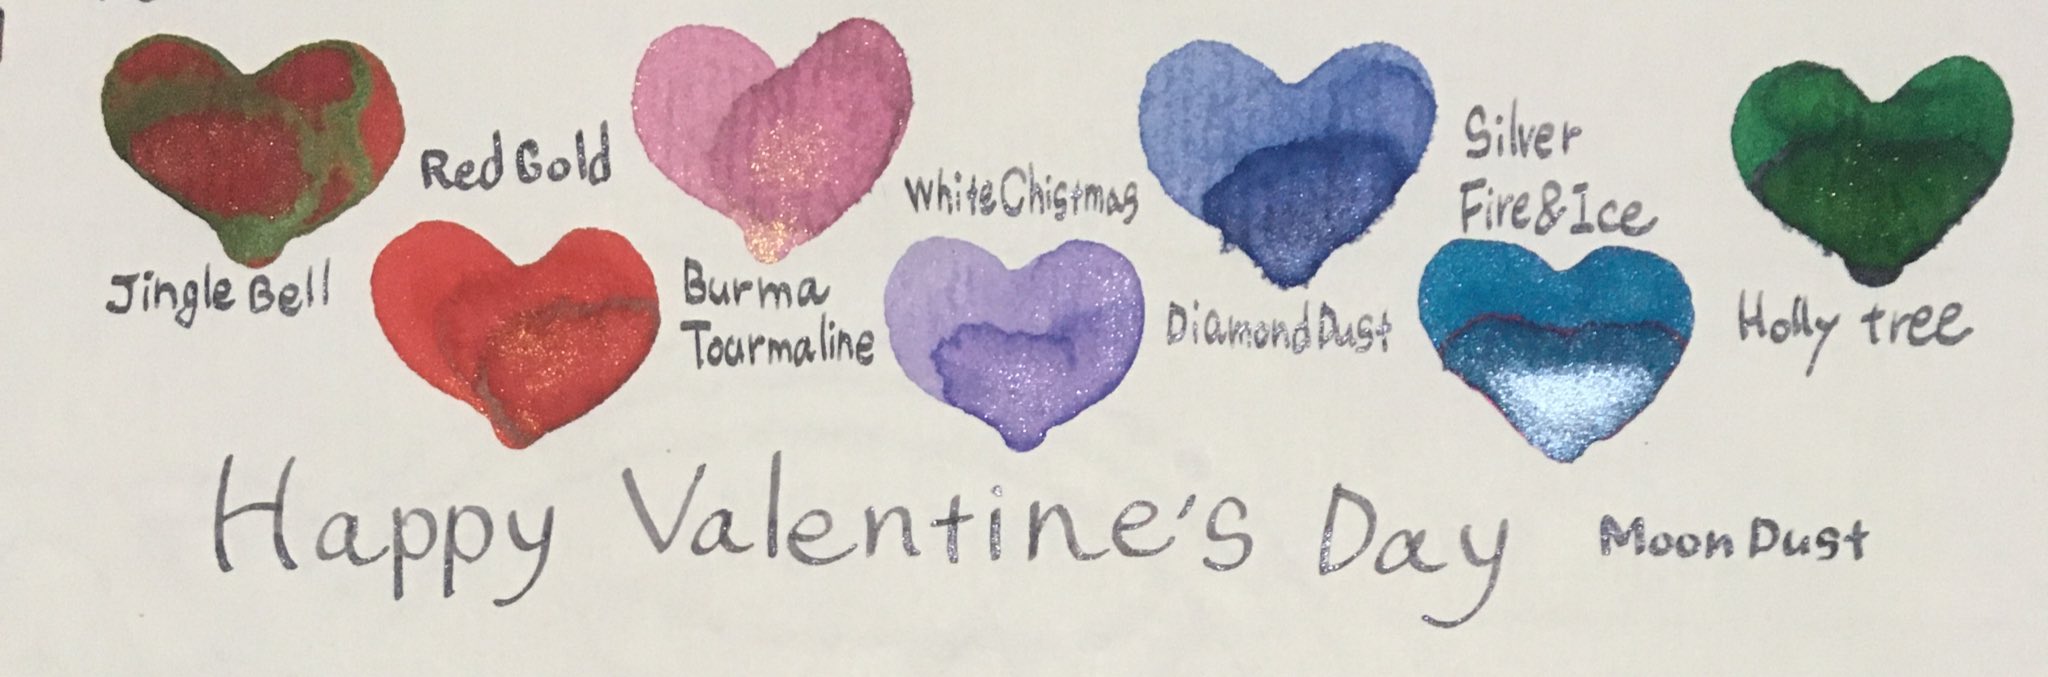 Jingle Bell
Red Gold
Burma
Tourmaline
White Chistmas
Diamond Dust
Silver
Fire & Ice
Holly tree
Happy Valentine's Day
Moon Dust